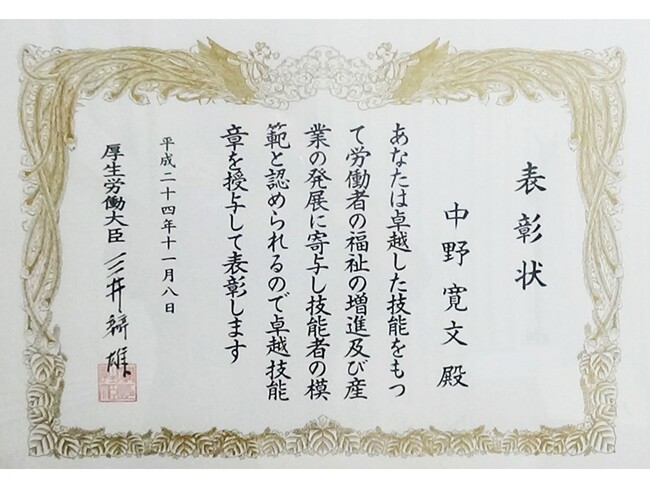 表彰状
中野寛文殿
あなたは卓越した技能をもつ
て労働者の福祉の増進及び産
業の発展に寄与し技能者の模
範と認められるので卓越技能
章を授与して表彰します
平成二十四年十一月八日
厚生労働大臣 三井辨雄